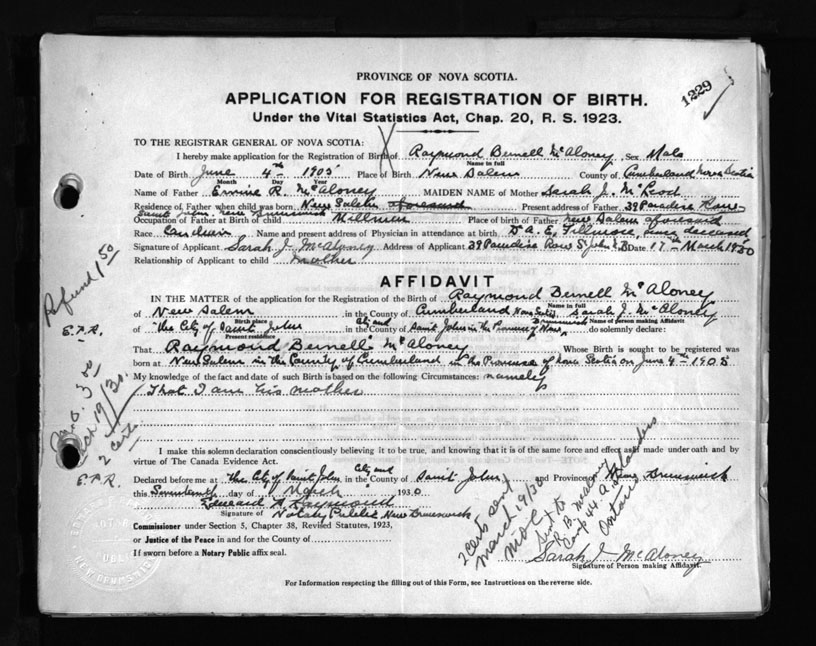 PROVINCE OF NOVA SCOTIA.
1229
APPLICATION FOR REGISTRATION OF BIRTH.
Under the Vital Statistics Act, Chap. 20, R. S. 1923.
TO THE REGISTRAR GENERAL OF NOVA SCOTIA:
I hereby make application for the Registration of Birth of Raymond Burnell McAloney Sex Male
Name in full
Date of Birth June 4th 1905 Place of Birth New Salem County of Cumberland Nova Scotia
Month Day Year
Name of Father R. McAloney MAIDEN NAME of Mother Sarah J. McLeod
Residence of Father when child was born New Salem aforesaid Present address of Father 39 Row
Saint John, New Brunswick
Occupation of Father at Birth of child Millman Place of birth of Father New Salem aforesaid
Race Name and present address of Physician in attendance at birth Dr A. E. deceased
Signature of Applicant Sarah J McAloney Address of Applicant 39 Row St John N B Date 17th March 1930
Relationship of Applicant to child mother
AFFIDAVIT
IN THE MATTER of the application for the Registration of the Birth of Raymond Burnell McAloney
Name in full
of New Salem in the County of Cumberland Nova Scotia Sarah J. McAloney
Birth place Name of person making Affidavit
of The City of Saint John in the City and County of Saint John in the Province of New Brunswick do solemnly declare:
Present residence
That Raymond Burnell McAloney Whose Birth is sought to be registered was
born at New Salem in the County of Cumberland in the Province of Nova Scotia on June 4th 1905
My knowledge of the fact and date of such Birth is based on the following Circumstances: namely
That I am his mother
I make this solemn declaration conscientiously believing it to be true, and knowing that it is of the same force and effect as if made under oath and by
virtue of The Canada Evidence Act.
Declared before me at The City of Saint John in the City and County of Saint John and Province of New Brunswick
this Seventeenth day of March 1930
Raymond
Signature of Notary Public New Brunswick
Commissioner under Section 5, Chapter 38, Revised Statutes, 1923,
or Justice of the Peace in and for the County of
If sworn before a Notary Public affix seal.
Sarah J McAloney
Signature of Person making Affidavit
For Information respecting the filling out of this Form, see Instructions on the reverse side.
Refund 1 50
E.P.R.
M.O. 3 00
Mch 19/30.
2 certs.
E.P.R.
2 certs sent
March 19/30
sent to
R B McAloney
Camp
Ontario